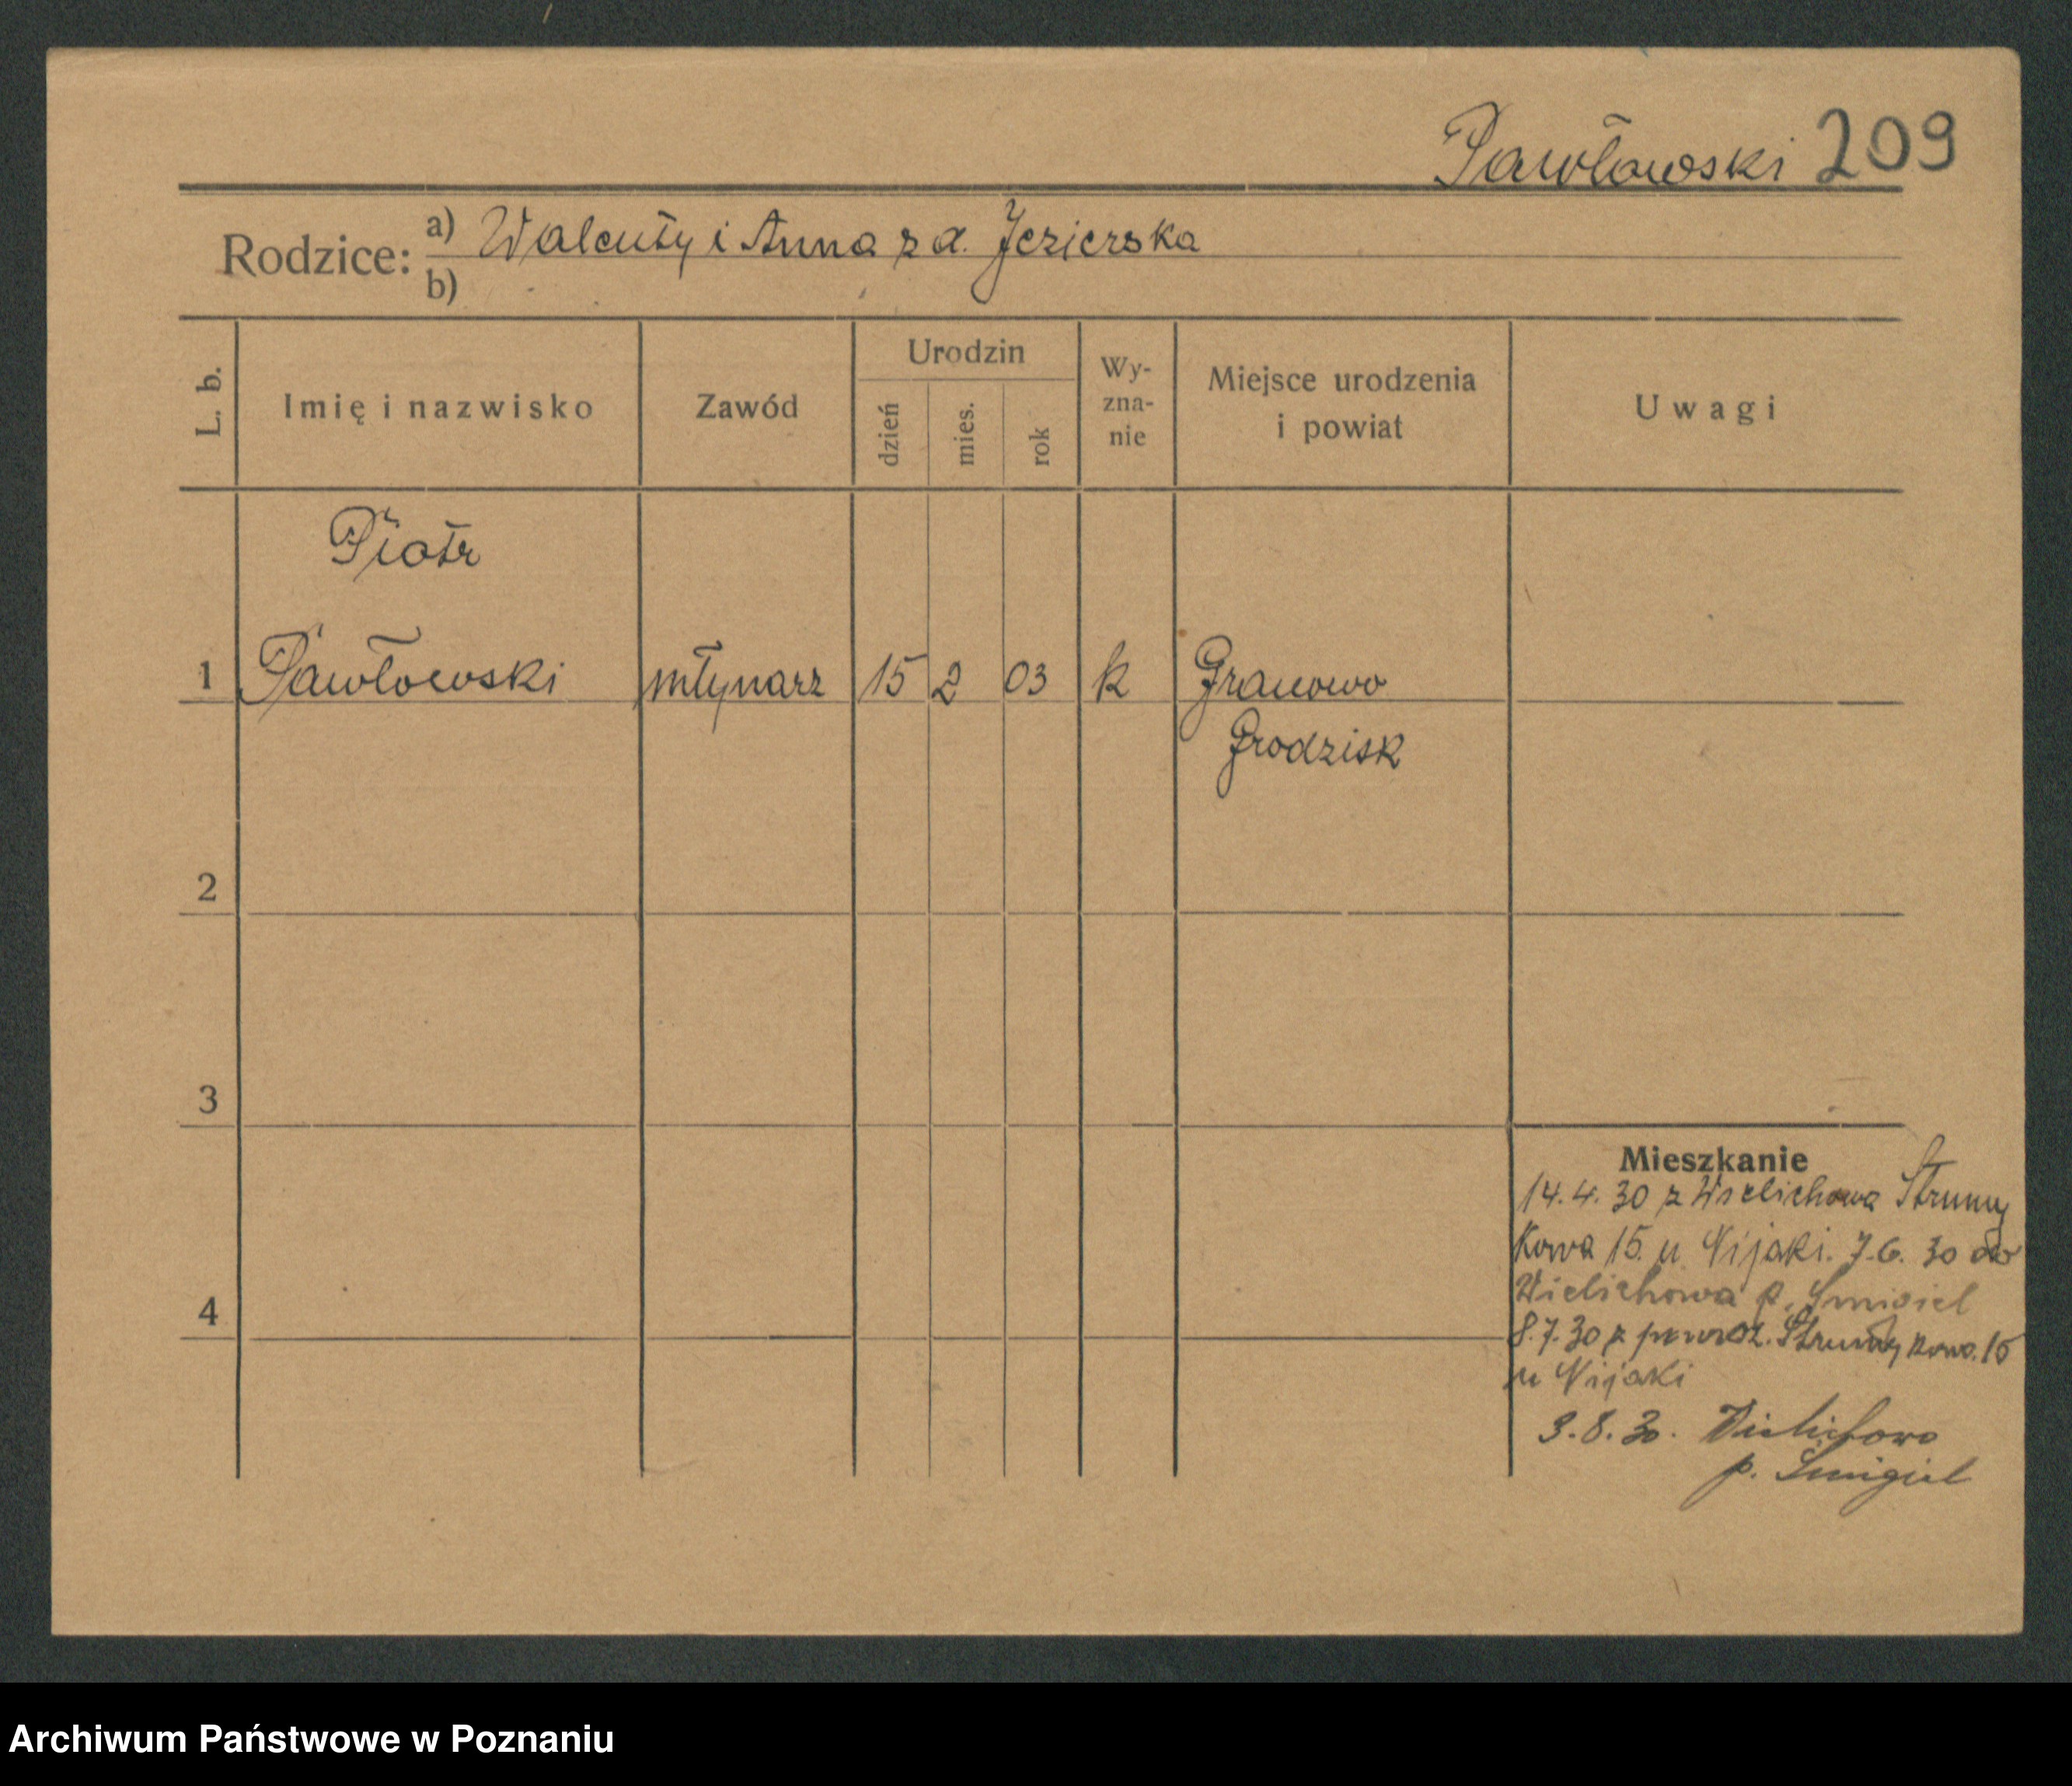 Pawłowski 209
Rodzice: a) Walenty i Anna z d. Jezierska
b)
L. b.
Imię i nazwisko
Zawód
Urodzin
dzień
mies.
rok
Wy-
zna-
nie
Miejsce urodzenia
i powiat
Uwagi
Piotr
1 Pawłowski młynarz 15 2 03 k Granowo
Grodzisk
2
3
4
Mieszkanie
14.4.30 z Wielichowa Strumy
kowa 15 u Nijaki. 7.6.30 do
Wielichowa p. Śmigiel
8.7.30 z powrot. Strumykowa 15
u Nijaki
3.8.30. Wielichowo
p. Śmigiel
Archiwum Państwowe w Poznaniu